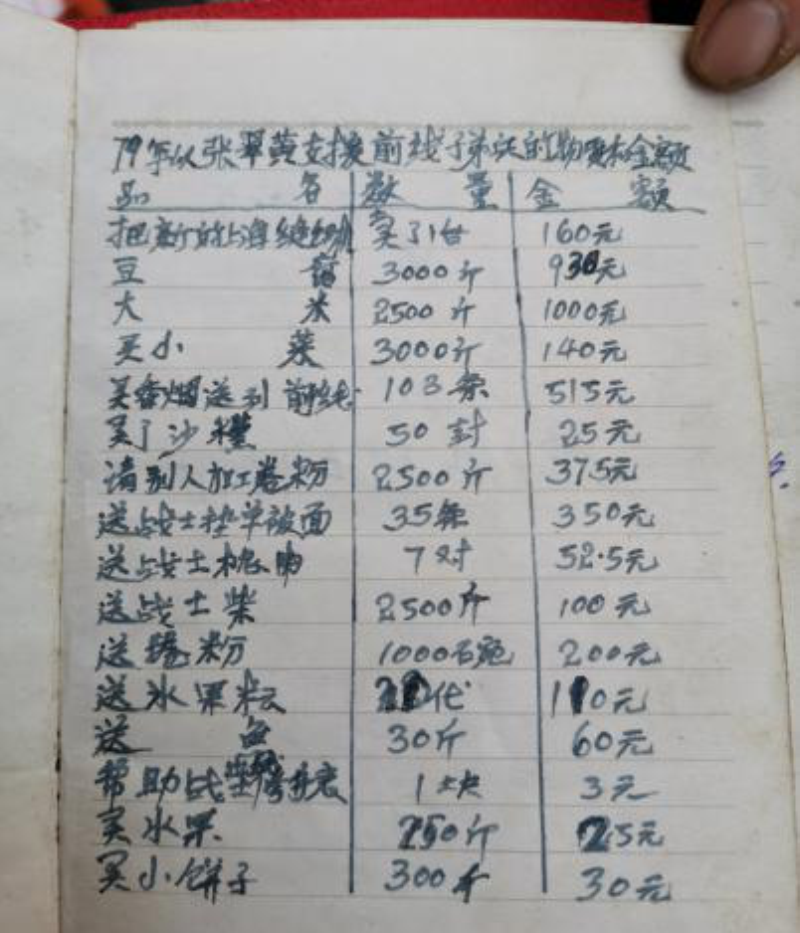 79年从张翠黄支援前线子弟兵的物资和金额
品名 数量 金额
把新的上海缝纫机 卖了1台 160元
豆腐 3000斤 930元
大米 2500斤 1000元
买小菜 3000斤 140元
买香烟送到前线 103条 515元
买了沙 50封 25元
请别人加工卷粉 2500斤 375元
送战士垫单被面 35条 350元
送战士枕 7对 52.5元
送战士柴 2500斤 100元
送卷粉 1000碗 200元
送水果 代 110元
送鱼 30斤 60元
帮助战士 1块 3元
买水果 250斤 25元
买小饼子 300斤 30元